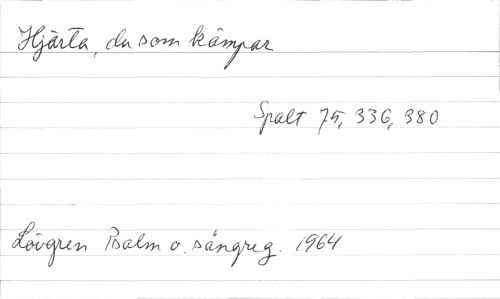 Hjärta, du som kämpar
Spalt 75, 336, 380
Lövgren Psalm o. sångreg. 1964